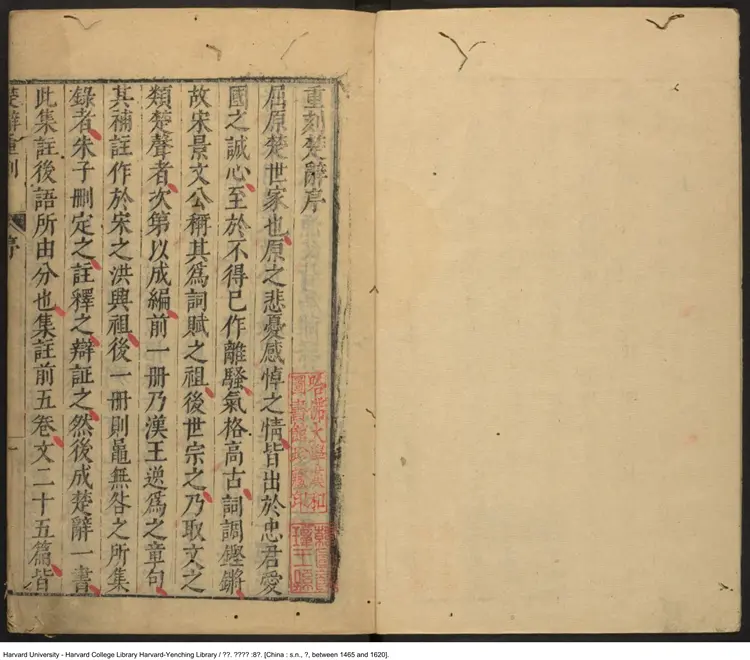 重刻楚辭序
屈原楚世家也原之悲憂感悼之情皆出於忠君愛
國之誠心至於不得已作離騷氣格高古詞調鏗鏘
故宋景文公稱其爲詞賦之祖後世宗之乃取文之
類楚聲者次第以成編前一册乃漢王逸爲之章句
其補註作於宋之洪興祖後一册則鼂無咎之所集
錄者朱子刪定之註釋之辯証之然後成楚辭一書
此集註後語所由分也集註前五卷文二十五篇皆
楚辭重刻 序 一
哈佛大學漢和
圖書館珍藏印
Harvard University - Harvard College Library Harvard-Yenching Library / ??. ???? :8?. [China : s.n., ?, between 1465 and 1620].